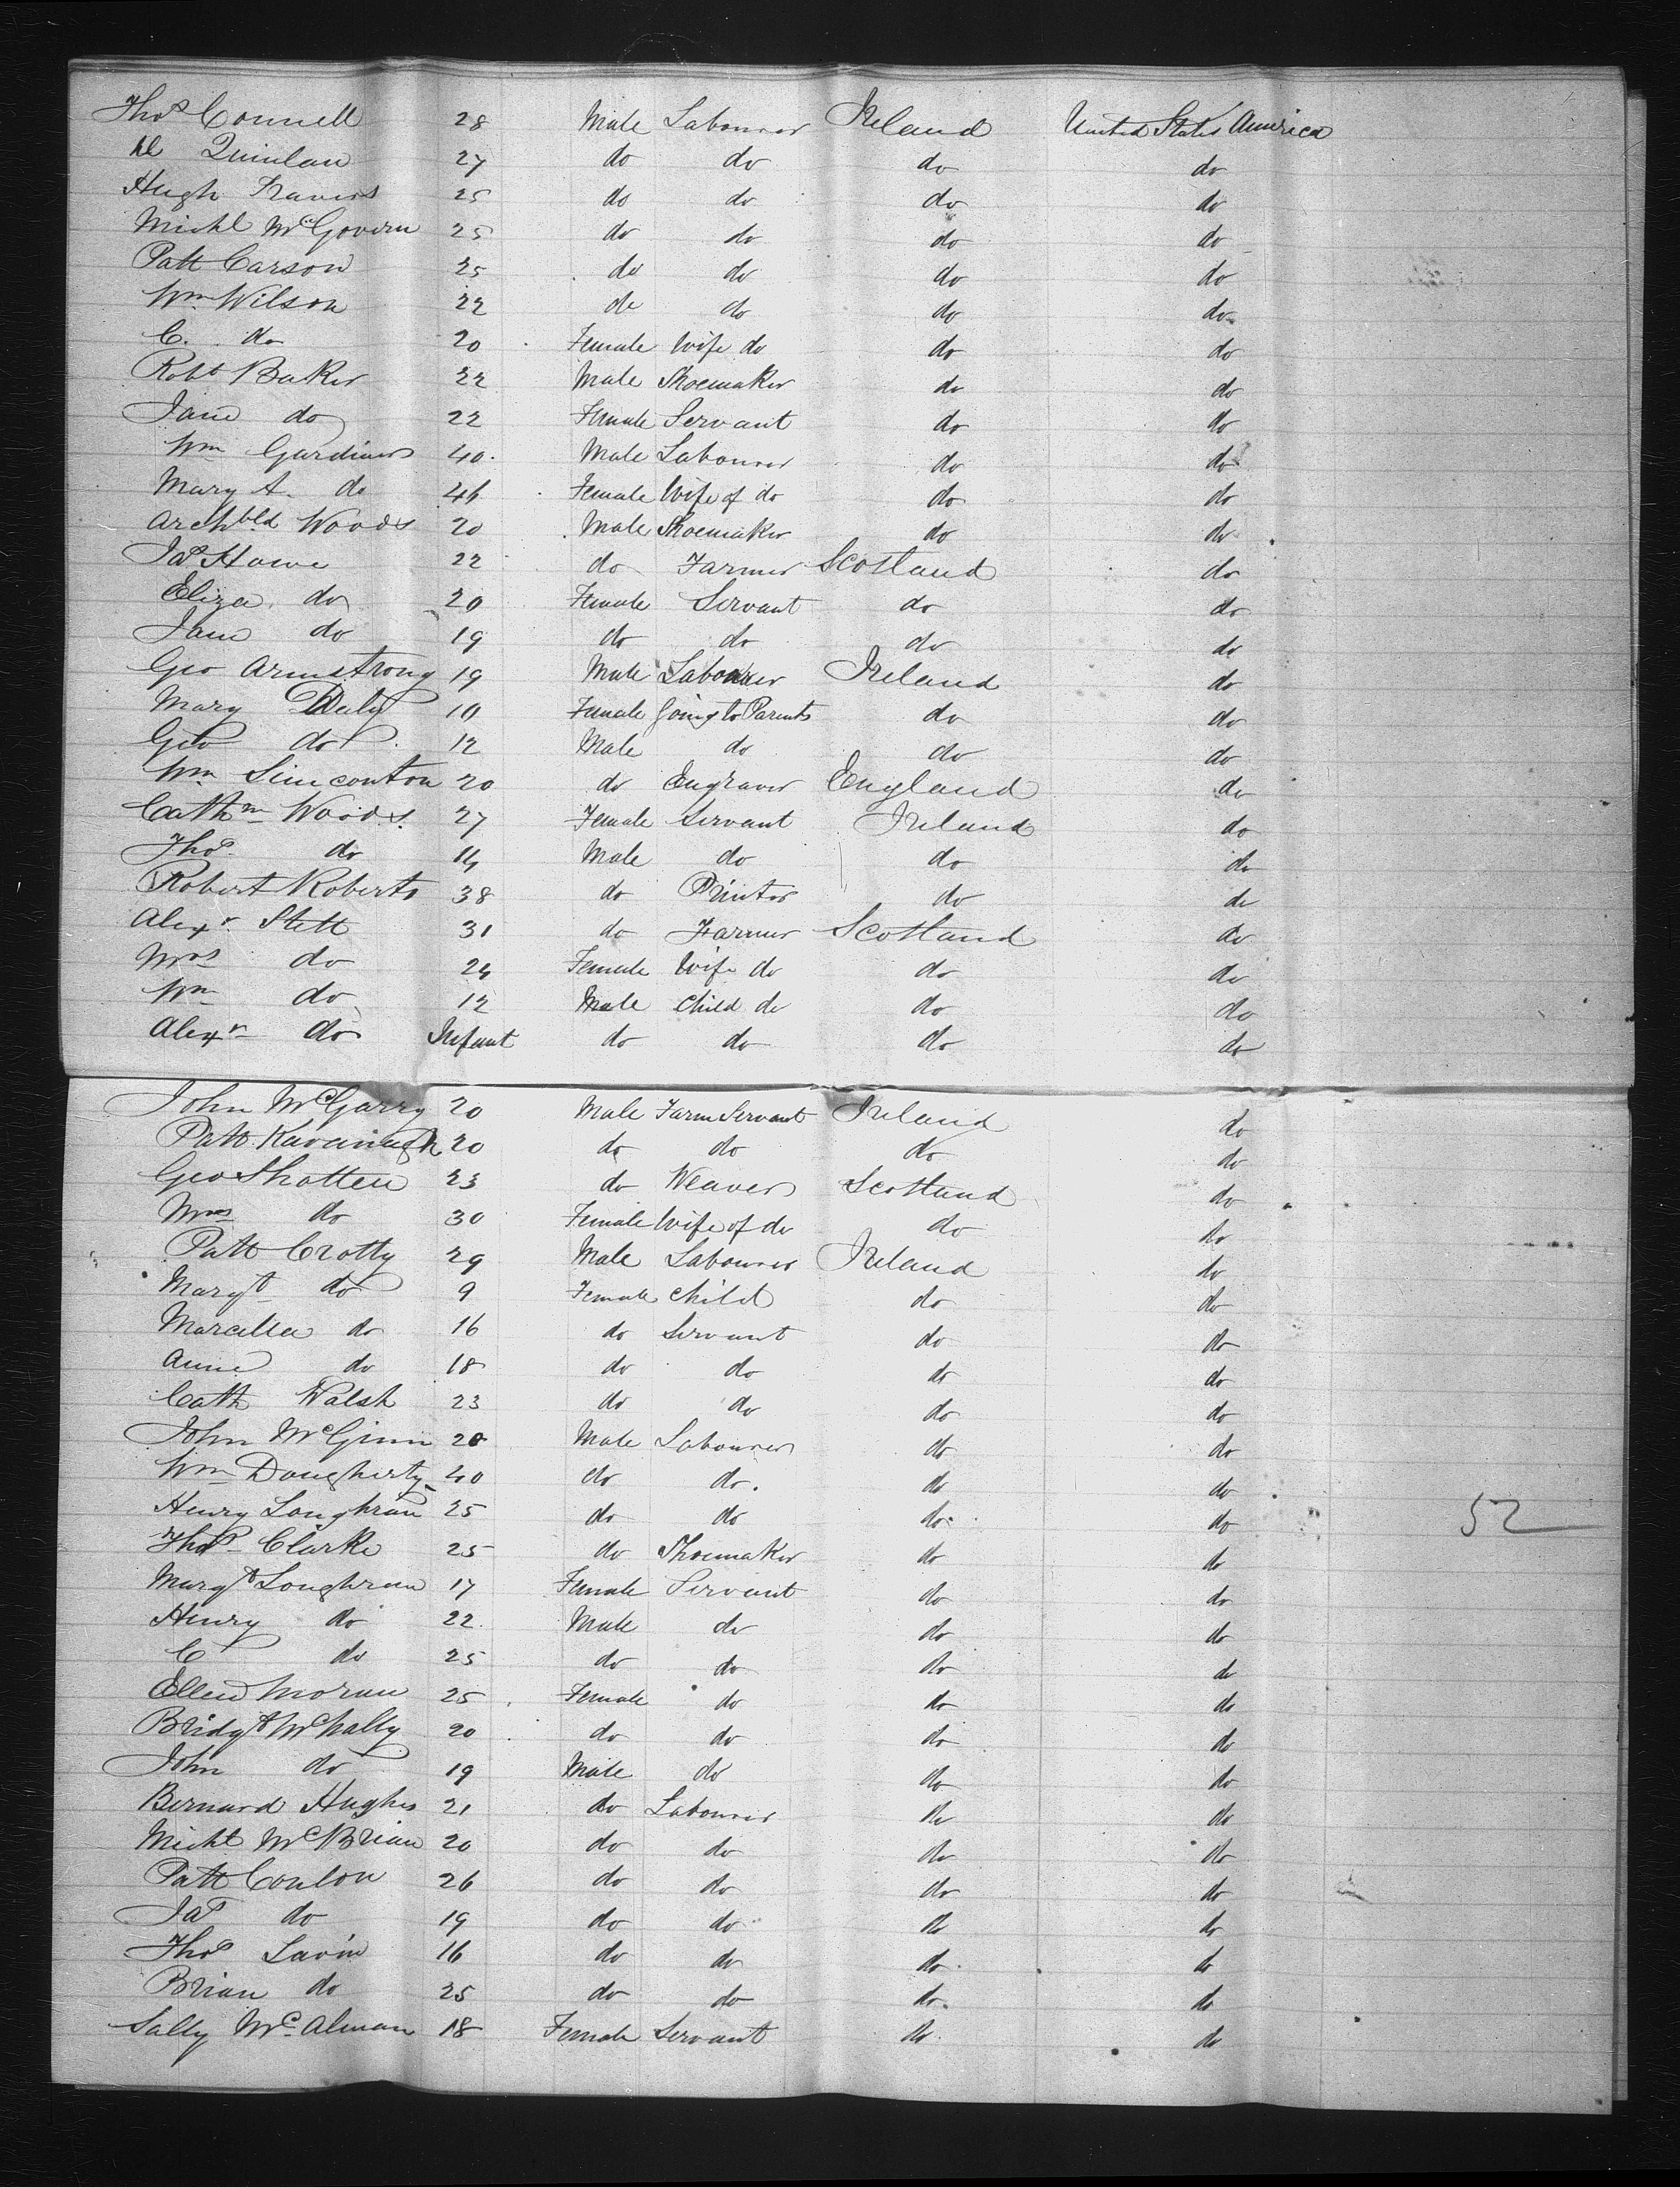 Thos Connell 28 Male Labourer Ireland United States America
Quinlan 27 do do do do
Hugh Travers 25 do do do do
Michl McGovern 25 do do do do
Patt Carson 25 do do do do
Wm Wilson 22 do do do do
C. do 20 Female Wife do do do
Robt Baker 22 Male Shoemaker do do
Jane do 22 Female Servant do do
Wm Gardiner 40 Male Labourer do do
Mary A. do 46 Female Wife of do do do
Archbld Woods 20 Male Shoemaker do do
Jas Howe 22 do Farmer Scotland do
Eliza do 20 Female Servant do do
Jane do 19 do do do do
Geo Armstrong 19 Male Labourer Ireland do
Mary Daly 10 Female going to Parents do do
Geo do 12 Male do do do
Wm Simconton 20 do Engraver England do
Cathn Woods 27 Female Servant Ireland do
Thos do 14 Male do do do
Robert Roberts 38 do Printer do do
Alexr Stett 31 do Farmer Scotland do
Mrs do 24 Female Wife do do do
Wm do 12 Male Child do do do
Alexr do Infant do do do do
John McGarry 20 Male Farm Servant Ireland do
Patt Kavanagh 20 do do do do
Geo Shotten 23 do Weaver Scotland do
Mrs do 30 Female Wife of do do do
Patt Crotty 29 Male Labourer Ireland do
Maryt do 9 Female Child do do
Marcella do 16 do Servant do do
Anne do 18 do do do do
Cath Walsh 23 do do do do
John McGinn 20 Male Labourer do do
Wm Dougherty 40 do do do do
Henry Loughran 25 do do do do
52
Thos Clarke 25 do Shoemaker do do
Margt Loughran 17 Female Servant do do
Henry do 22 Male do do do
C do 25 do do do do
Ellen Moran 25 Female do do do
Bridgt McNally 20 do do do do
John do 19 Male do do do
Bernard Hughes 21 do Labourer do do
Michl McBrian 20 do do do do
Patt Conlon 26 do do do do
Jas do 19 do do do do
Thos Lavin 16 do do do do
Brian do 25 do do do do
Sally McAlman 18 Female Servant do do